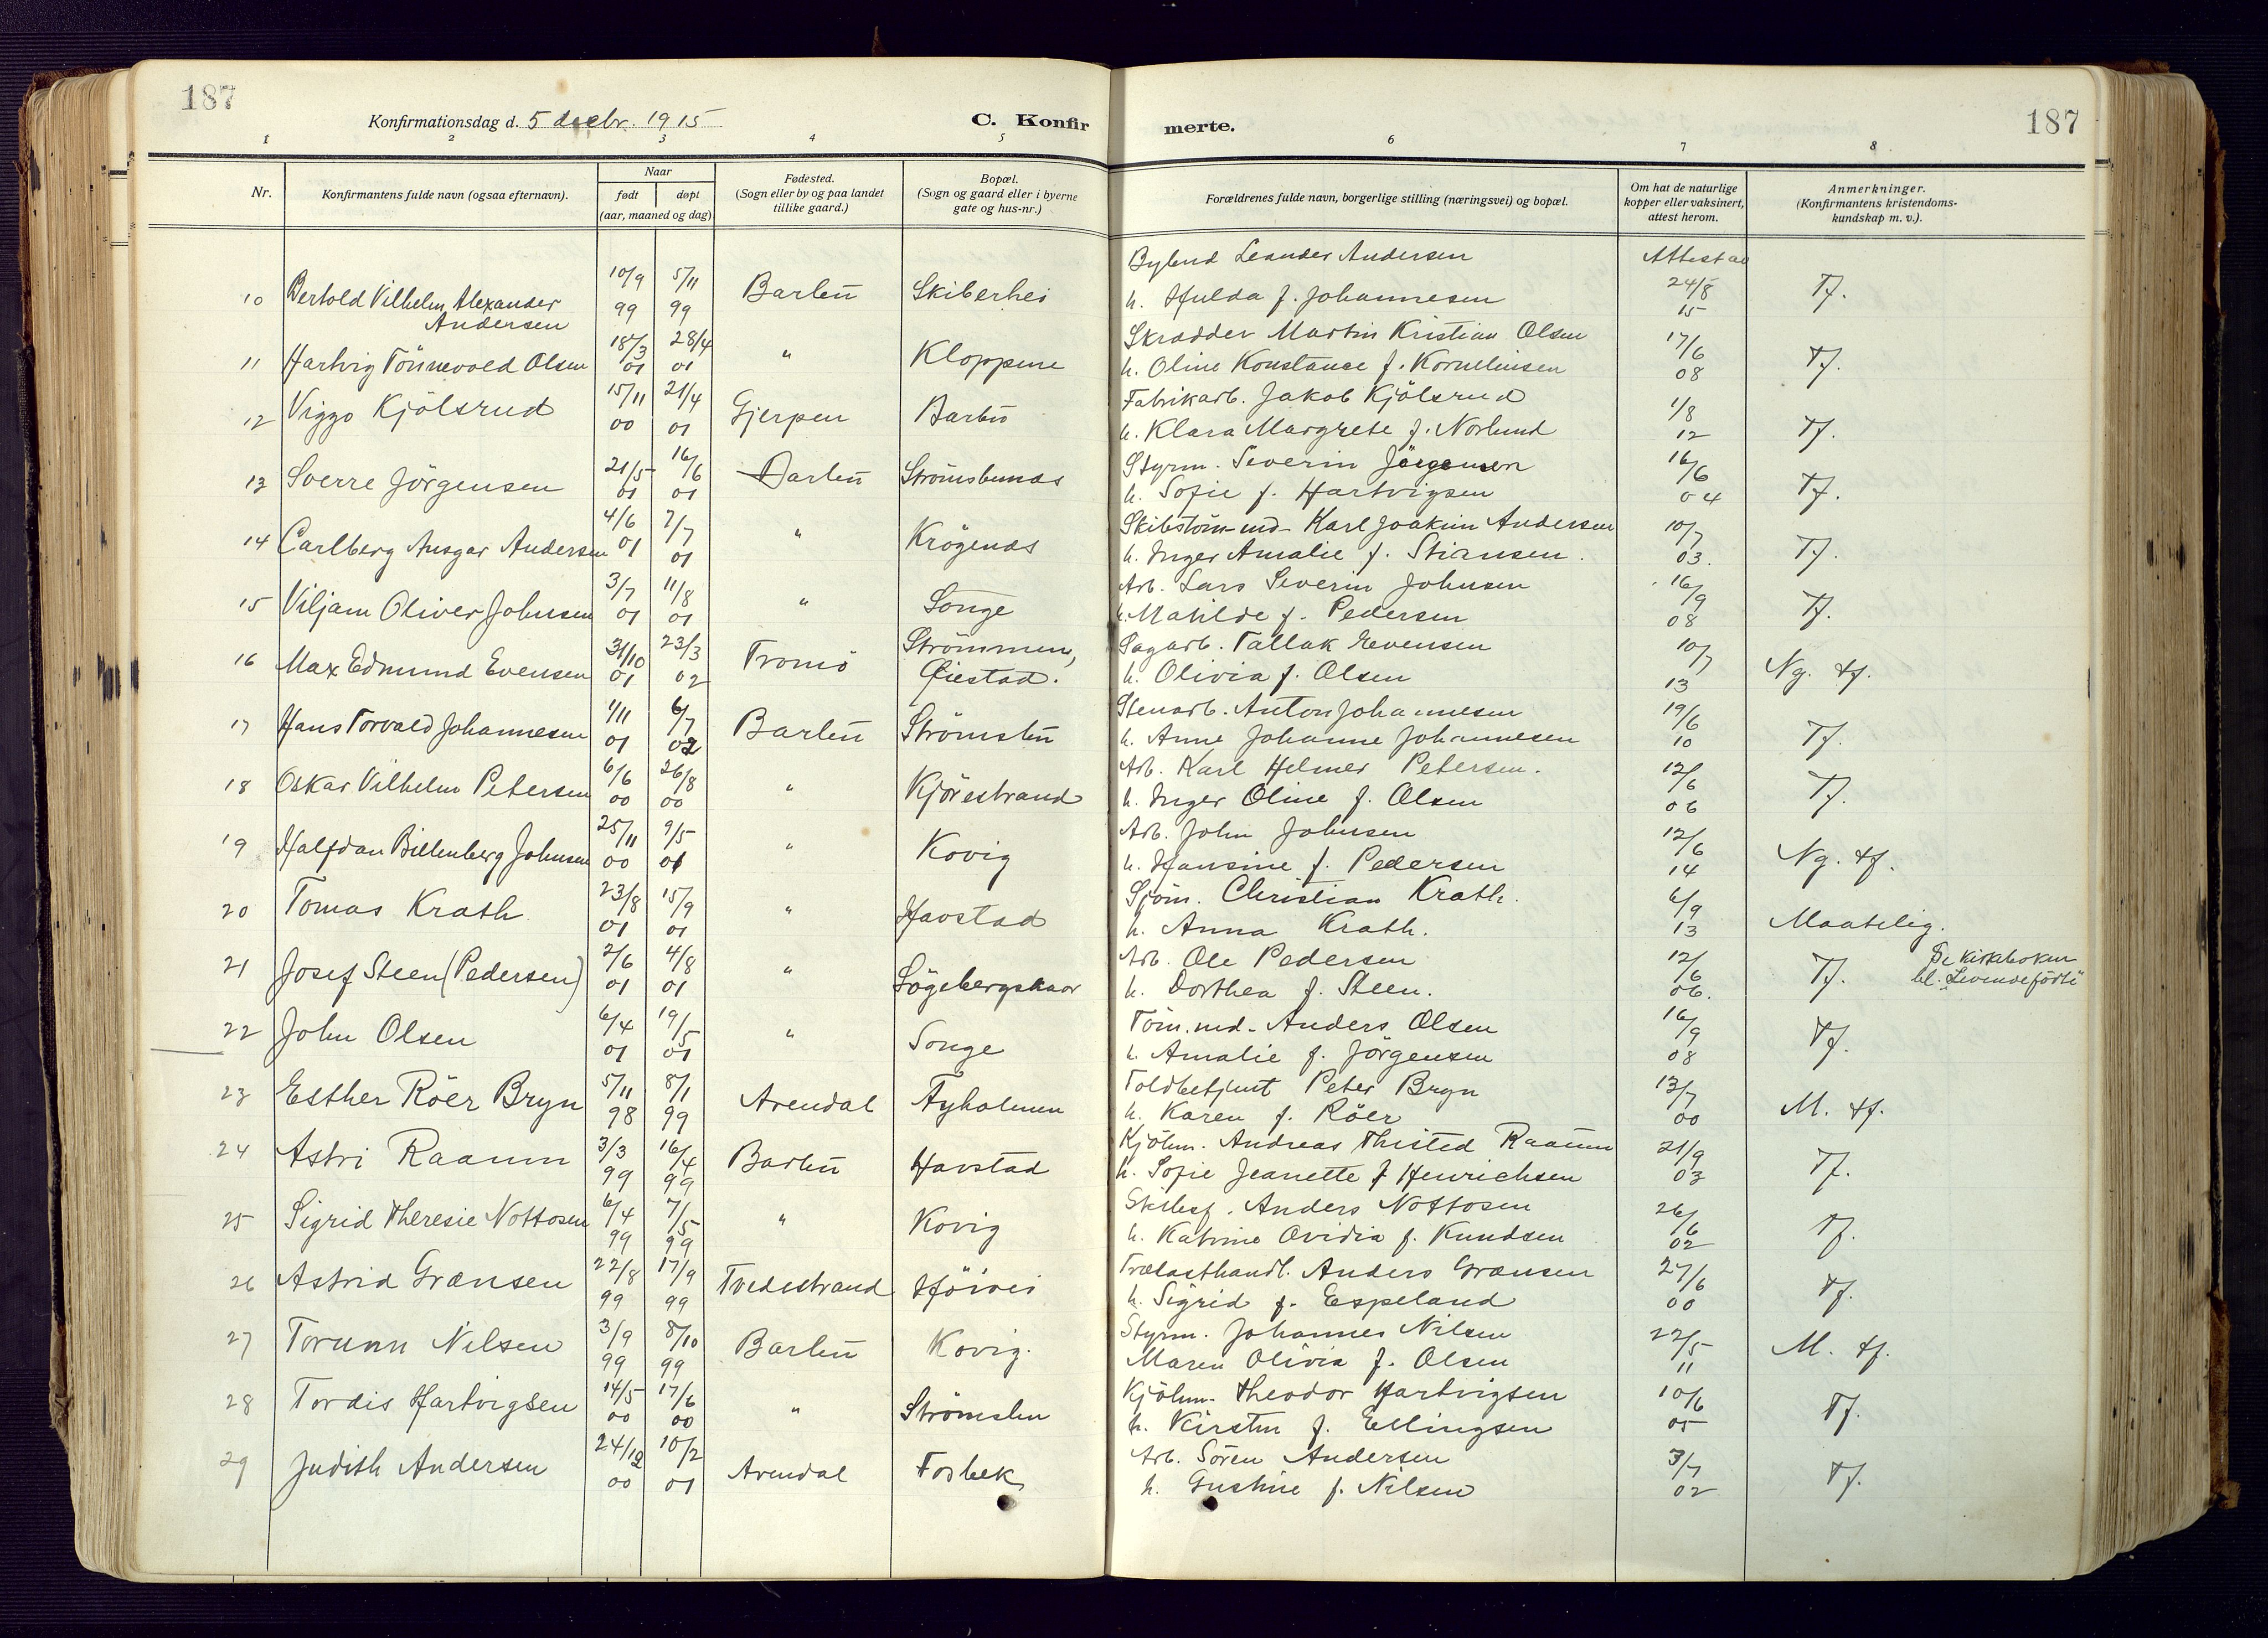 187
187
Konfirmationsdag d. 5 decbr. 1915
C. Konfirmerte.
1 2 3 4 5 6 7 8
Nr.
Konfirmantens fulde navn (ogsaa efternavn).
Naar
født døpt
(aar, maaned og dag)
Fødested.
(Sogn eller by og paa landet
tillike gaard.)
Bopæl.
(Sogn og gaard eller i byerne
gate og hus-nr.)
Forældrenes fulde navn, borgerlige stilling (næringsvei) og bopæl.
Om hat de naturlige
kopper eller vaksinert,
attest herom.
Anmerkninger.
(Konfirmantens kristendoms-
kundskap m. v.).
Leander Andersen Attest av
10 Bertold Vilhelm Alexander 10/9 5/11 Barbu Skiberhei h. Hulda f. Johannesen 24/8 Tf.
Andersen 99 99 15
Skrædder Martin Kristian Olsen
11 Hartvig Tönnevold Olsen 18/3 28/4 " Kloppene 17/6 Tf.
01 01 h. Oline Konstanse f. Korneliusen 08
12 Viggo Kjölsrud 15/11 21/4 Gjerpen Barbu Fabrikarb. Jakob Kjölsrud 1/8
00 01 h. Klara Margrete f. Norlund 12 Tf.
13 Sverre Jörgensen 21/5 16/6 Barbu Strömsbunds Styrm. Severin Jörgensen 16/6
01 01 h. Sofie f. Hartvigsen 04 Tf.
14 Carlberg Ansgar Andersen 4/6 7/7 " Krögenes Skibstöm.md. Karl Joakim Andersen 10/7
01 01 h. Inger Amalie f. Stiansen. 03. Tf.
15 Viljam Oliver Johnsen 3/7 11/8 " Songe Arb. Lars Severin Johnsen 16/9
01 01 h. Matilde f. Pedersen 08 Tf.
16 Max Edmund Evensen 31/10 23/3 Tromö Strömmen, Sagarb. Tallak Evensen 10/7
01 02 Øiestad. h. Olivia f. Olsen 13 Ng. tf.
17 Hans Torvald Johannesen 1/11 6/7 Barbu Strömsbu Stenarb. Anton Johannesen 19/6
01 02 h. Anne Johanne Johannesen 10 Tf.
18 Oskar Vilhelm Petersen 6/6 26/8 " Kjörestrand Arb. Karl Helmer Petersen. 12/6
00 00 h. Inger Oline f. Olsen 06 Tf.
19 Halfdan Billenberg Johnsen 25/11 9/5 " Kovig Arb. John Johnsen 12/6
00 01 h. Hansine f. Pedersen 14 Ng. tf.
20 Tomas Krath 23/8 15/9 " Havstad Sjöm. Christian Krath. 6/9
01 01 h. Anna Krath. 13 Maatelig.
21 Josef Steen (Pedersen) 2/6 4/8 " Sögebergskaar Arb. Ole Pedersen 12/6 Tf. Se kirkeboken
01 01 h. Dorthea f. Steen. 06. bl. "Levendefödte"
22 John Olsen 6/4 19/5 " Songe Töm.md. Anders Olsen 16/9
01 01 h. Amalie f. Jörgensen 08 Tf.
23 Esther Röer Bryn 5/11 8/1 Arendal Tyholmen Toldbetjent Peter Bryn 13/7
98 99 h. Karen f. Röer 00 M. tf.
24 Astri Raaum 3/3 16/4 Barbu Havstad Kjöbm. Andreas Thisted Raaum 21/9
99 99 h. Sofie Jeanette f. Henrichsen 03 Tf.
25 Sigrid Theresie Nottosen 6/4 7/5 " Kovig Skibsf. Anders Nottosen 26/6
99 99 h. Katrine Ovidia f. Knudsen 02 Tf.
26 Astrid Grænsen 22/8 17/9 Tvedestrand Höivei Trælasthandl. Anders Grænsen 27/6
99 99 h. Sigrid f. Espeland 00 Tf.
27 Torunn Nilsen 3/9 8/10 Barbu Kovig. Styrm. Johannes Nilsen 22/5
99 99 Maren Olivia f. Olsen 11 M. tf.
28 Tordis Hartvigsen 14/5 17/6 " Strömsbu Kjöbm. Theodor Hartvigsen 10/6
00 00 h. Kirsten f. Ellingsen 05 Tf.
29 Judith Andersen 24/12 10/2 Arendal Fosbek Arb. Sören Andersen 3/7
00 01 h. Gustine f. Nilsen 02 Tf.